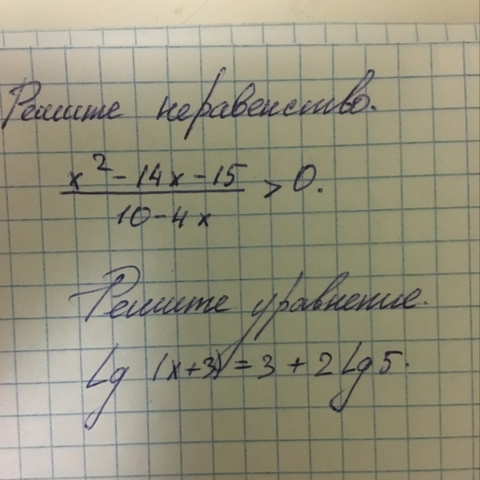 Решите неравенство.
x² - 14x - 15
10 - 4x
> 0.
Решите уравнение.
Lg (x+3) = 3 + 2 Lg 5.